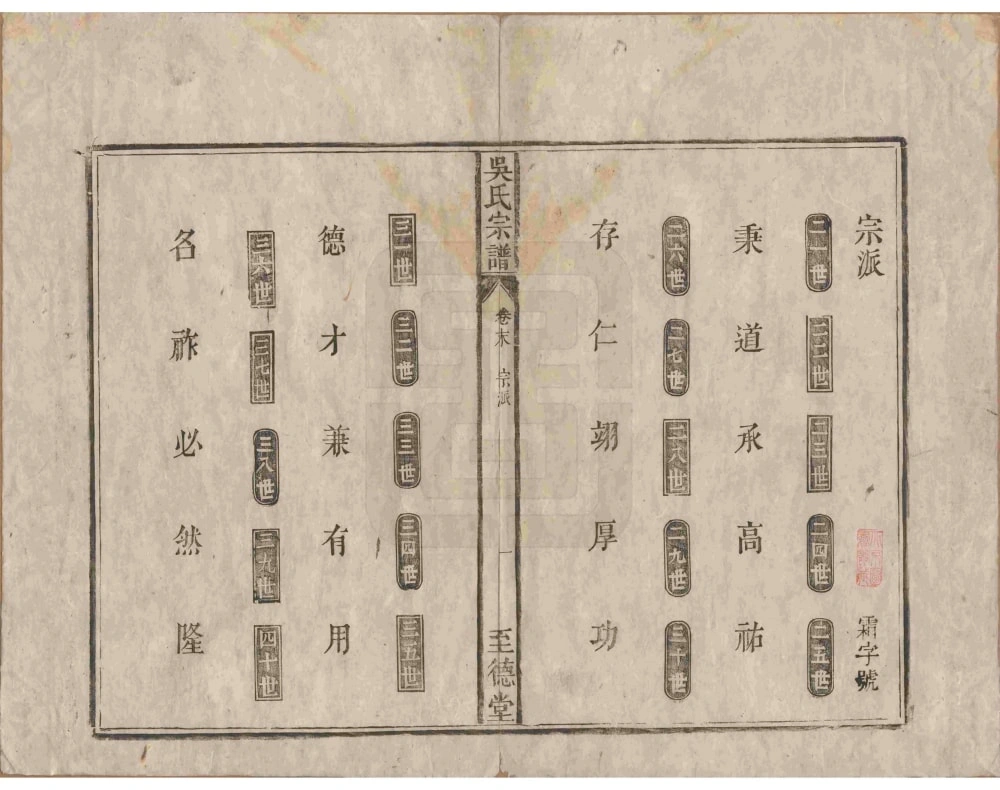 宗派 霜字號
二一世 二二世 二三世 二四世 二五世
秉道承高祐
二六世 二七世 二八世 二九世 三十世
存仁翊厚功
吳氏宗譜 卷末 宗派 一 至德堂
三一世 三二世 三三世 三四世 三五世
德才兼有用
三六世 三七世 三八世 三九世 四十世
名祚必然隆